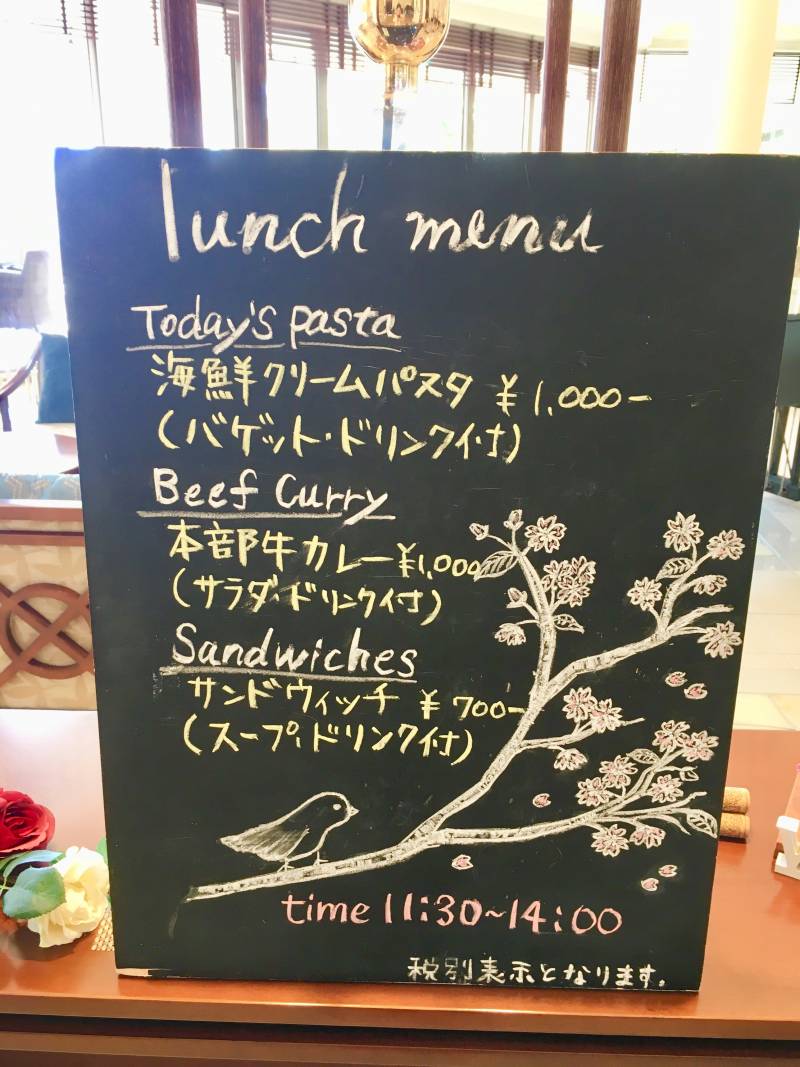 lunch menu
Today's pasta
海鮮クリームパスタ ¥1,000-
(バゲット・ドリンク付)
Beef Curry
本部牛カレー ¥1,000
(サラダ・ドリンク付)
Sandwiches
サンドウィッチ ¥700-
(スープ・ドリンク付)
time 11:30~14:00
税別表示となります。